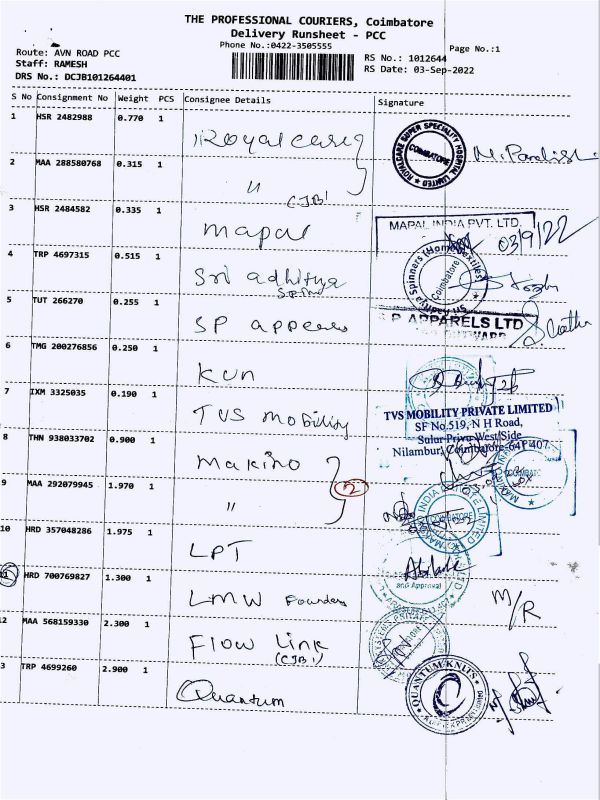 THE PROFESSIONAL COURIERS, Coimbatore
Delivery Runsheet - PCC
Phone No.:0422-3505555
Page No.:1
Route: AVN ROAD PCC
RS No.: 1012644
Staff: RAMESH
RS Date: 03-Sep-2022
DRS No.: DCJB101264401
S No Consignment No Weight PCS Consignee Details Signature
1 HSR 2482988 0.770 1 Royalcare
ROYALCARE SUPER SPECIALITY HOSPITAL LIMITED
COIMBATORE
2 MAA 288580768 0.315 1 "
(CJB)
3 HSR 2484582 0.335 1 mapal
MAPAL INDIA PVT. LTD.
03/9/22
4 TRP 4697315 0.515 1 Sri adhitya
Spinn
Spinners (Home Textiles)
Coimbatore
5 TUT 266270 0.255 1 SP appeares
S P APPARELS LTD
6 TMG 200276856 0.250 1 KUN
7 IXM 3325035 0.190 1 TVS mobility
TVS MOBILITY PRIVATE LIMITED
SF No.519, N H Road,
Sulur Privu West Side
Nilambur, Coimbatore-641407.
8 THN 938033702 0.900 1 Makino
2
9 MAA 292079945 1.970 1 "
COIMBATORE
10 HRD 357048286 1.975 1 LPT
and Approval
11 HRD 700769827 1.300 1 LMW Founders
M/R
12 MAA 568159330 2.300 1 Flow Link
(CJB)
13 TRP 4699260 2.900 1 Quantum
QUANTUM KNITS